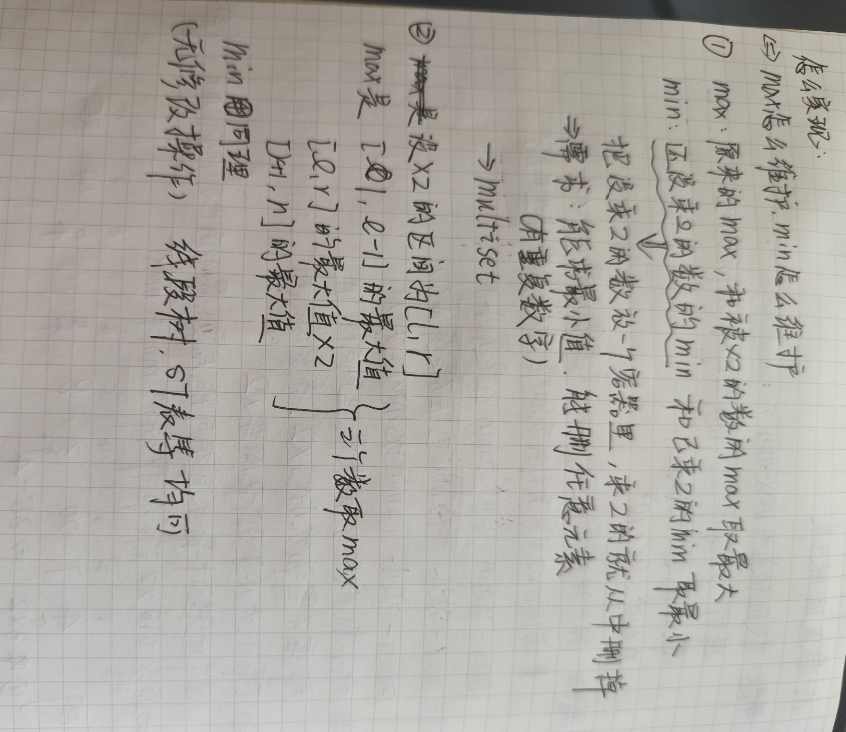 怎么实现:
⇔ max怎么维护, min怎么维护
① max: 原来的max, 和被×2的数的max取最大
min: 还没乘2的数的min 和已乘2的min 取最小
把没乘2的数放一个容器里, 乘2的就从中删掉
⇒需求: 能求最小值. 能删任意元素
(有重复数字)
→multiset
② 设×2的区间为[l,r]
max是 [1, l-1] 的最大值
[l,r] 的最大值×2
[r+1, n] 的最大值
三个数取max
min 同理
(无修改操作) 线段树, ST表等均可